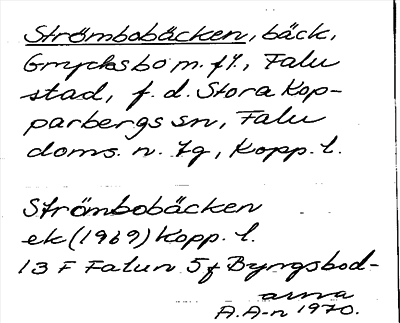 Strömbobäcken, bäck,
Grycksbo m. fl., Falu
stad, f. d. Stora Kop-
parbergs sn, Falu
doms. n. tg, Kopp. l.
Strömbobäcken
ek (1969) Kopp. l.
13 F Falun 5f Byngsbod-
arna
A. A-n 1970.